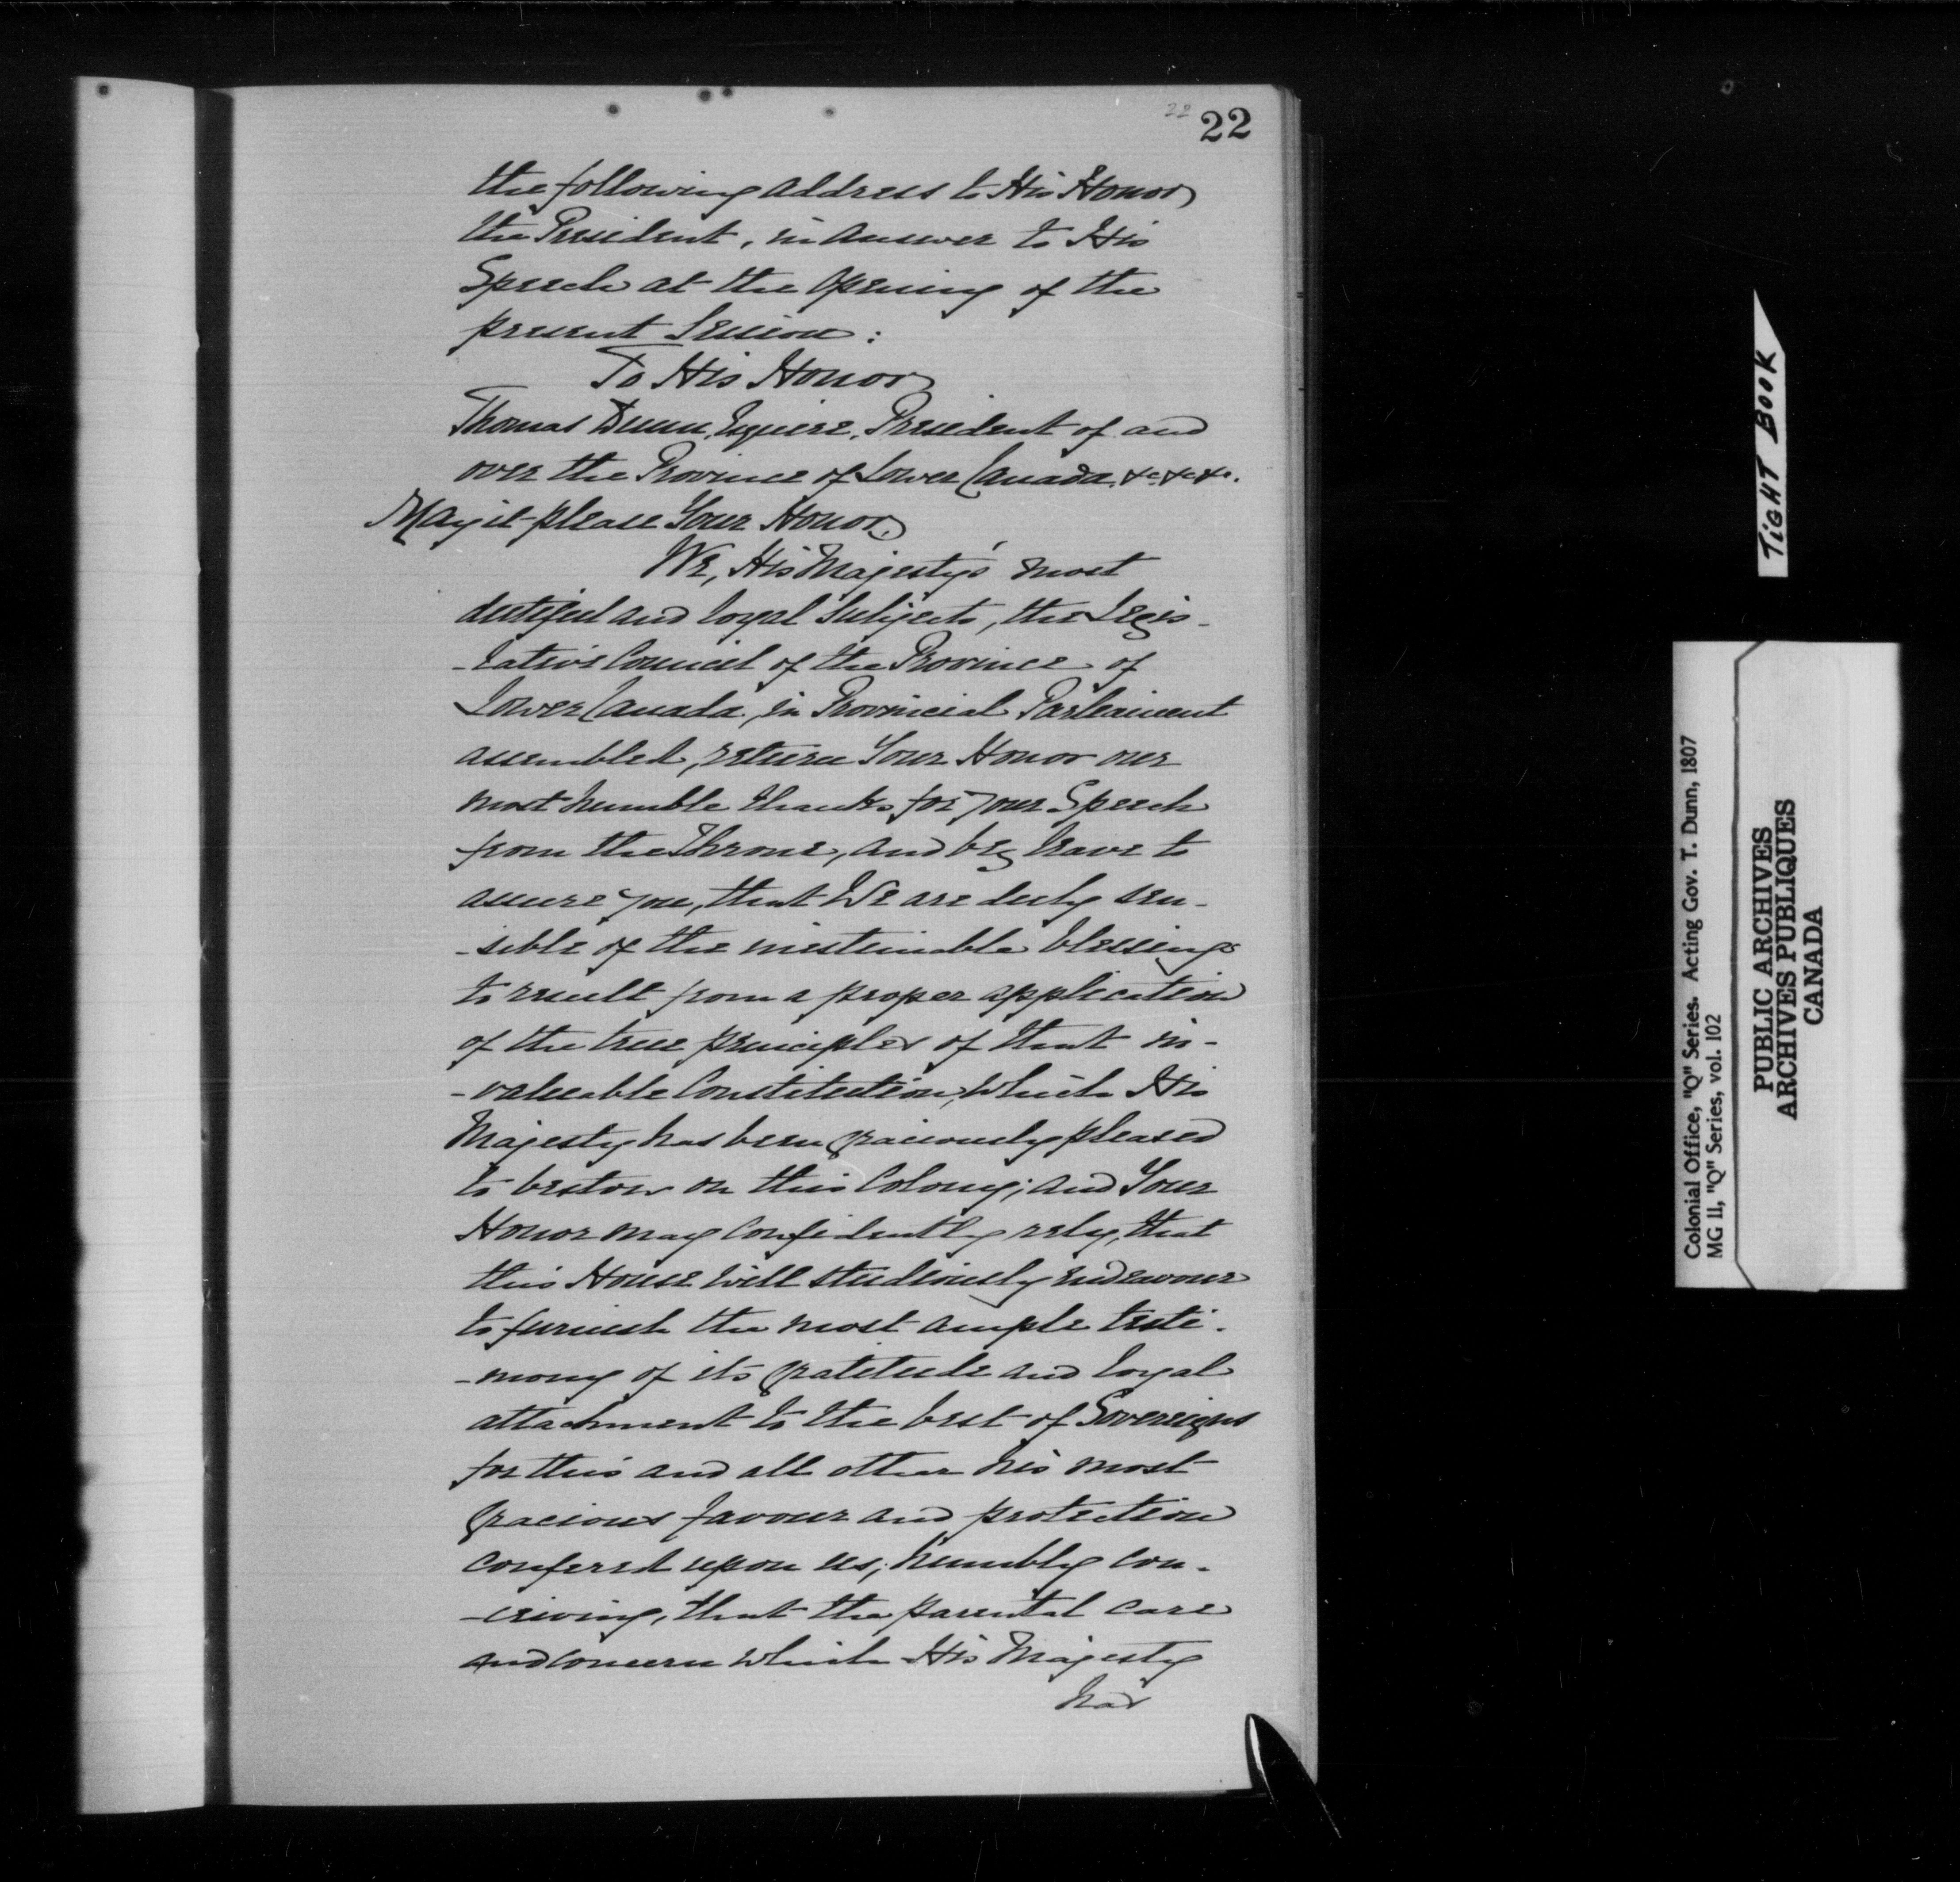 22 22
the following address to His Honor
the President, in answer to His
Speech at the opening of the
present Session:
To His Honor
Thomas Dunn, Esquire, President of and
over the Province of Lower Canada, &c. &c. &c.
May it please Your Honor,
We, His Majesty's most
dutiful and loyal Subjects, the Legis-
-lative Council of the Province of
Lower Canada, in Provincial Parliament
assembled, return Your Honor our
most humble thanks for your Speech
from the Throne, and beg leave to
assure you, that We are duly sen-
-sible of the inestimable blessings
to result from a proper application
of the true principles of that in-
-valuable Constitution, which His
Majesty has been graciously pleased
to bestow on this Colony; and Your
Honor may confidently rely, that
this House will studiously endeavour
to furnish the most ample testi-
-mony of its gratitude and loyal
attachment to the best of Sovereigns
for this and all other his most
gracious favour and protection
confered upon us; humbly con-
-ceiving, that the parental care
and concern which His Majesty
has
TIGHT BOOK
Colonial Office, "Q" Series. Acting Gov. T. Dunn, 1807
MG 11, "Q" Series, vol. 102
PUBLIC ARCHIVES
ARCHIVES PUBLIQUES
CANADA